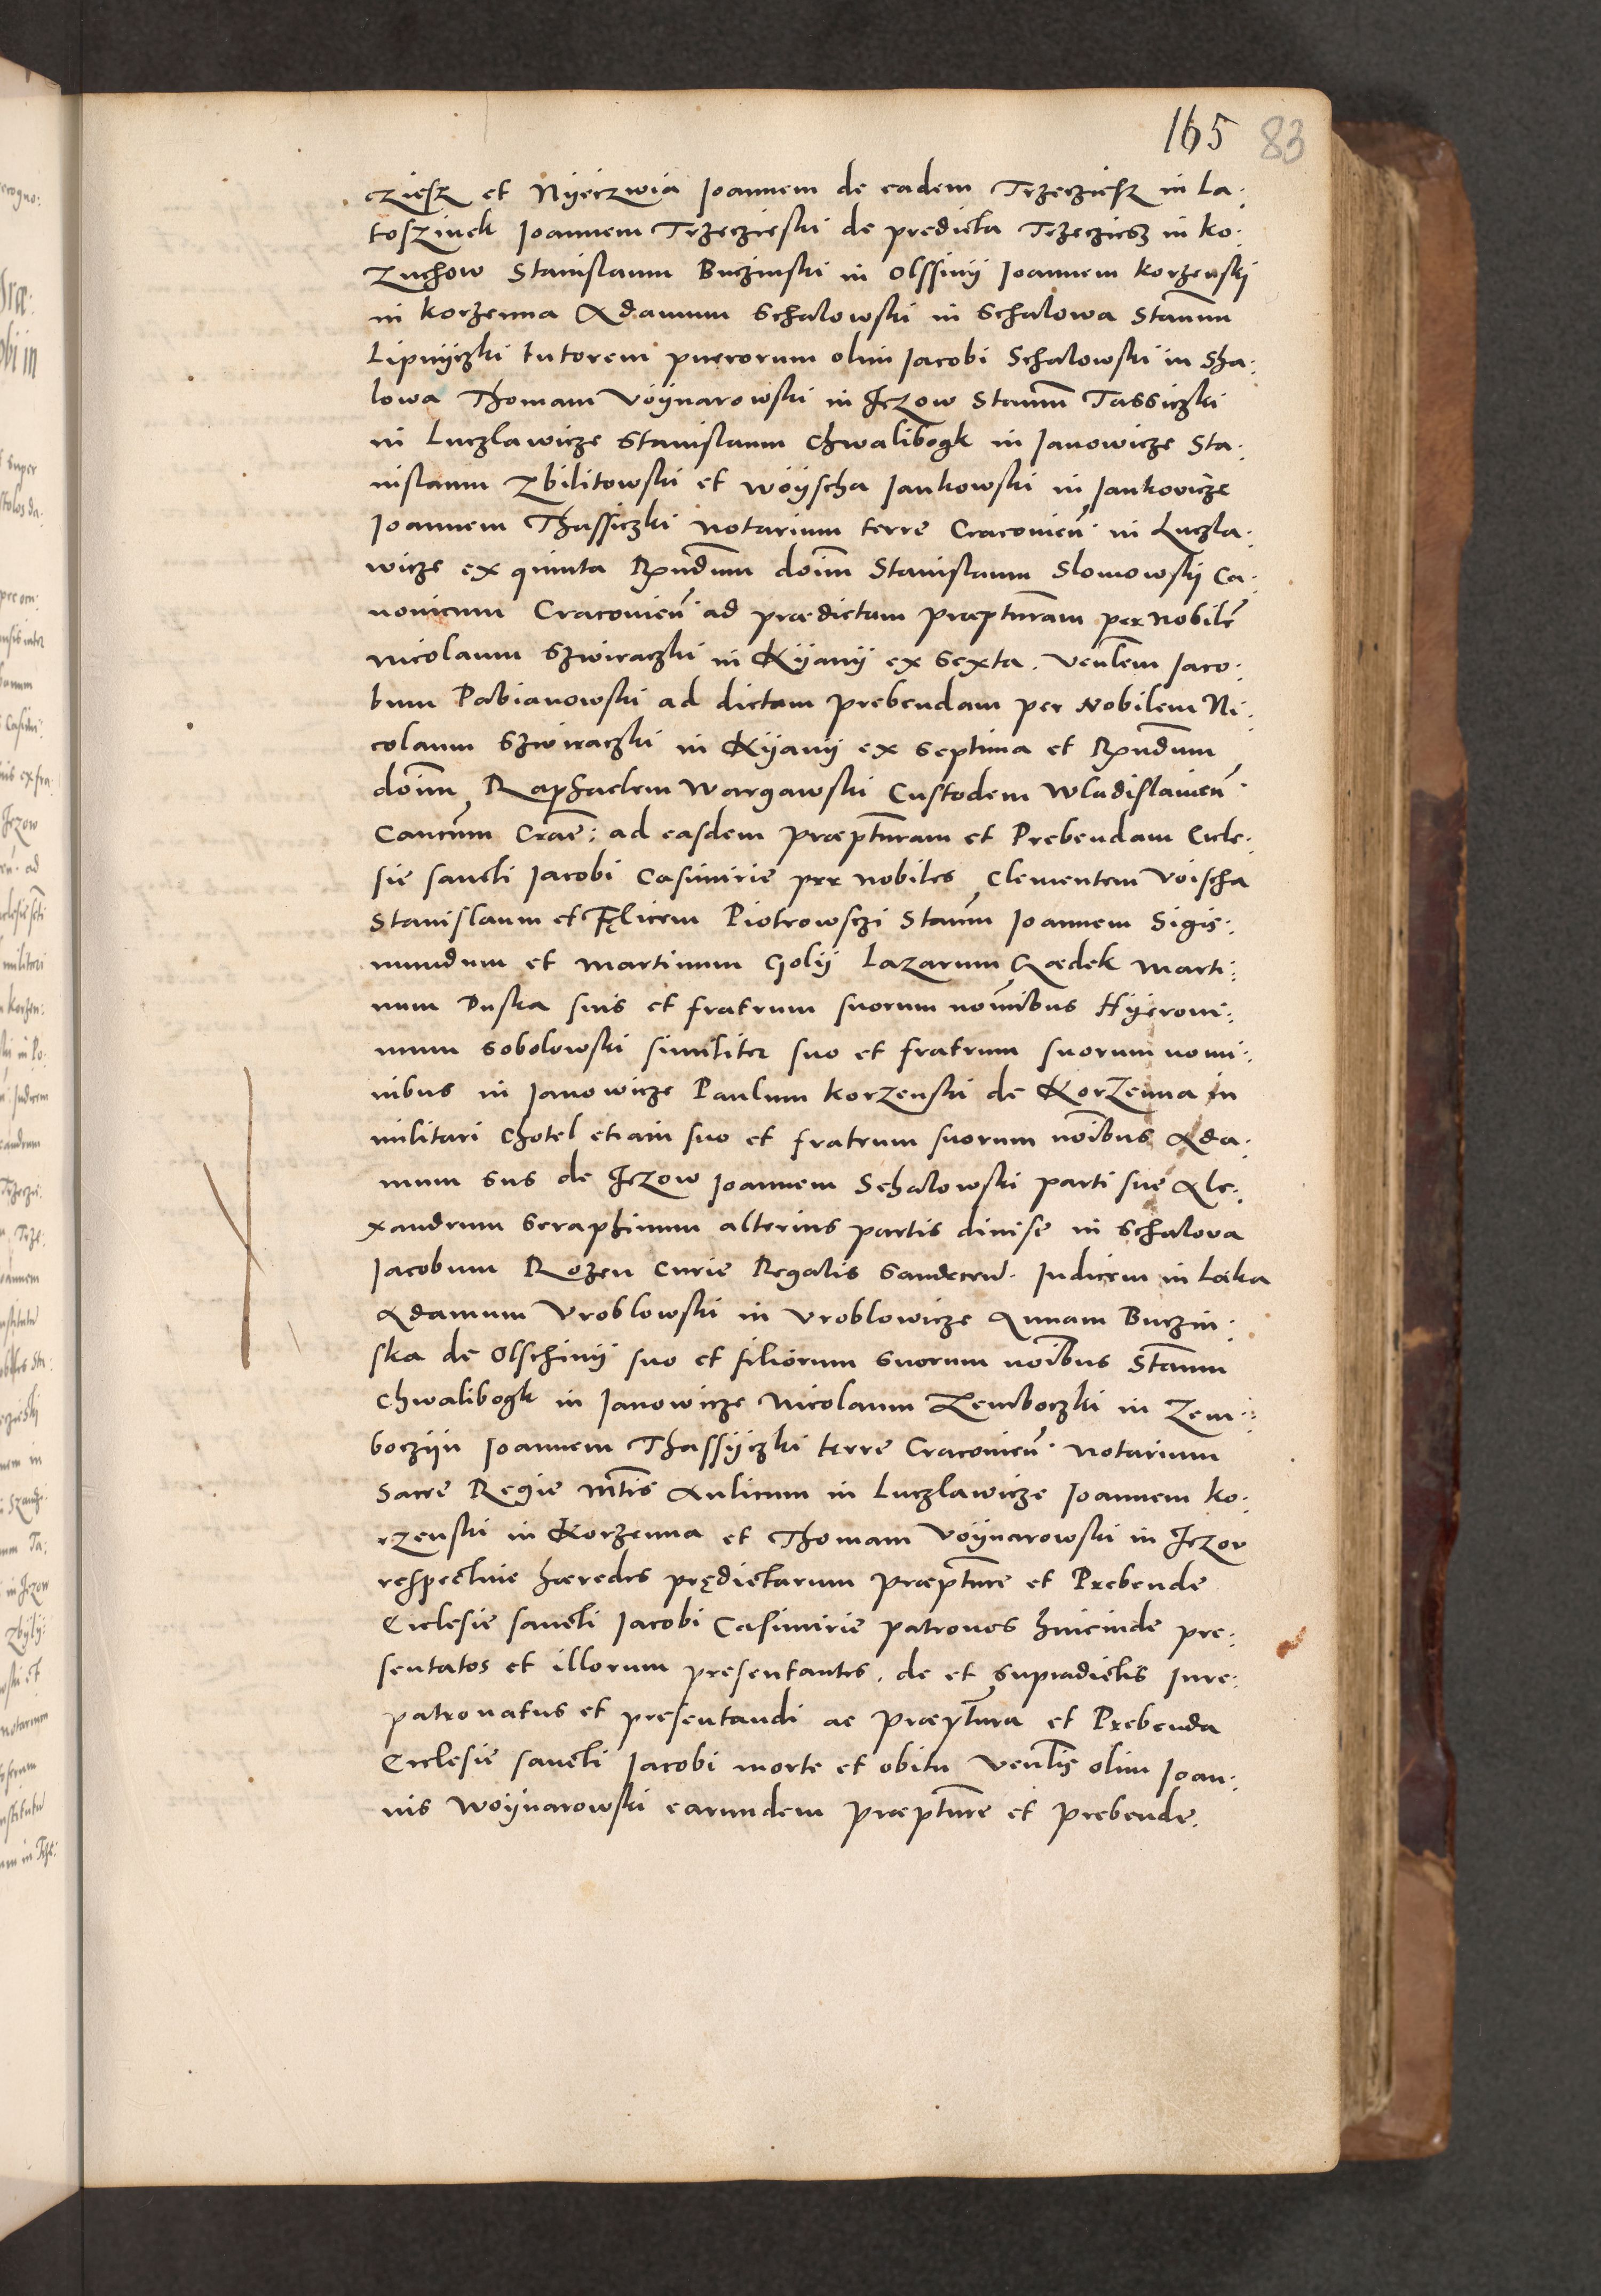 165 83
cziesz et Nyeczwia Joannem de eadem Trzecziesz in La:
toszinek Joannem Trzeczieski de predicta Trzecziesz in Ko:
zuchow Stanislaum Buczinski in Olssinÿ Joannem Korzenskj
in Korzenna Adamum Schalowski in Schalowa Stanm̄
Lipnÿczki tutorem puerorum olim Jacobi Schalowski in Sha:
lowa Thomam Voÿnarowski in Jezow Stanm̄ Tassiczki
in Luczlawicze Stanislaum Chwalibogk in Janowicze Sta:
nislaum Zbilitowski et Woÿscha Jankowski in Jankovicze
Joannem Thassiczki notarium terre Cracovien̄ in Luczla:
wicze ex quinta Rn̄dum doīm Stanislaum Slomowskj Ca:
nonicum Cracovien̄ ad prædictam præpt̄uram per Nobilē
Nicolaum Szwiraczki in Kÿanÿ ex sexta. Venlem̄ Jaco:
bum Pabianowski ad dictam prebendam per Nobilem Ni:
colaum Szwiraczki in Kÿanÿ ex septima et Rn̄dum
doīm Raphaelem Wargawski Custodem Wladislavien̄
Cancūm Crac̄: ad easdem Præpt̄uram et Prebendam Eccle:
sie sancti Jacobi Casimirie per nobiles Clementem Voischa
Stanislaum et Fęlicem Piotrowsczi Stanm̄ Joannem Sigis:
mundum et Martinum Golÿ Lazarum Gædek Marti:
num Duska suis et fratrum suorum nom̄ibus Hÿeroni:
mum Sobolowski similiter suo et fratrum suorum nomi:
nibus in Janowicze Paulum Korzenski de Korzenna in
militari Chotel etiam suo et fratrum suorum noībus Ada:
mum Sus de Jezow Joannem Schalowski parti sue Ale:
xandrum Seraphinum alterius partis divise in Schalova
Jacobum Rozen Curie Regalis Sandecen̄. Judicem in Læka
Adamum Vroblowski in Vroblowicze Annam Buczin:
ska de Olschinÿ suo et filiorum suorum noībus Stanm̄
Chwalibogk in Janowicze Nicolaum Zemboczki in Zem:
boczÿn Joannem Thassÿczki terre Cracovien̄ Notarium
Sacre Regie Mt̄is Aulicum in Luczlawicze Joannem Ko:
rzenski in Korzenna et Thomam Voÿnarowski in Jezov
respective hæredes prędictarum Præpt̄ure et Prebende
Ecclesie sancti Jacobi Casimirie patronos hincinde pre:
sentatos et illorum presentantes. de et supradictis Jure:
patronatus et presentandi ac Præpt̄ura et Prebenda
Ecclesie sancti Jacobi morte et obitu Venlis̄ olim Joan:
nis Woÿnarowski earundem Præpt̄ure et Prebende.